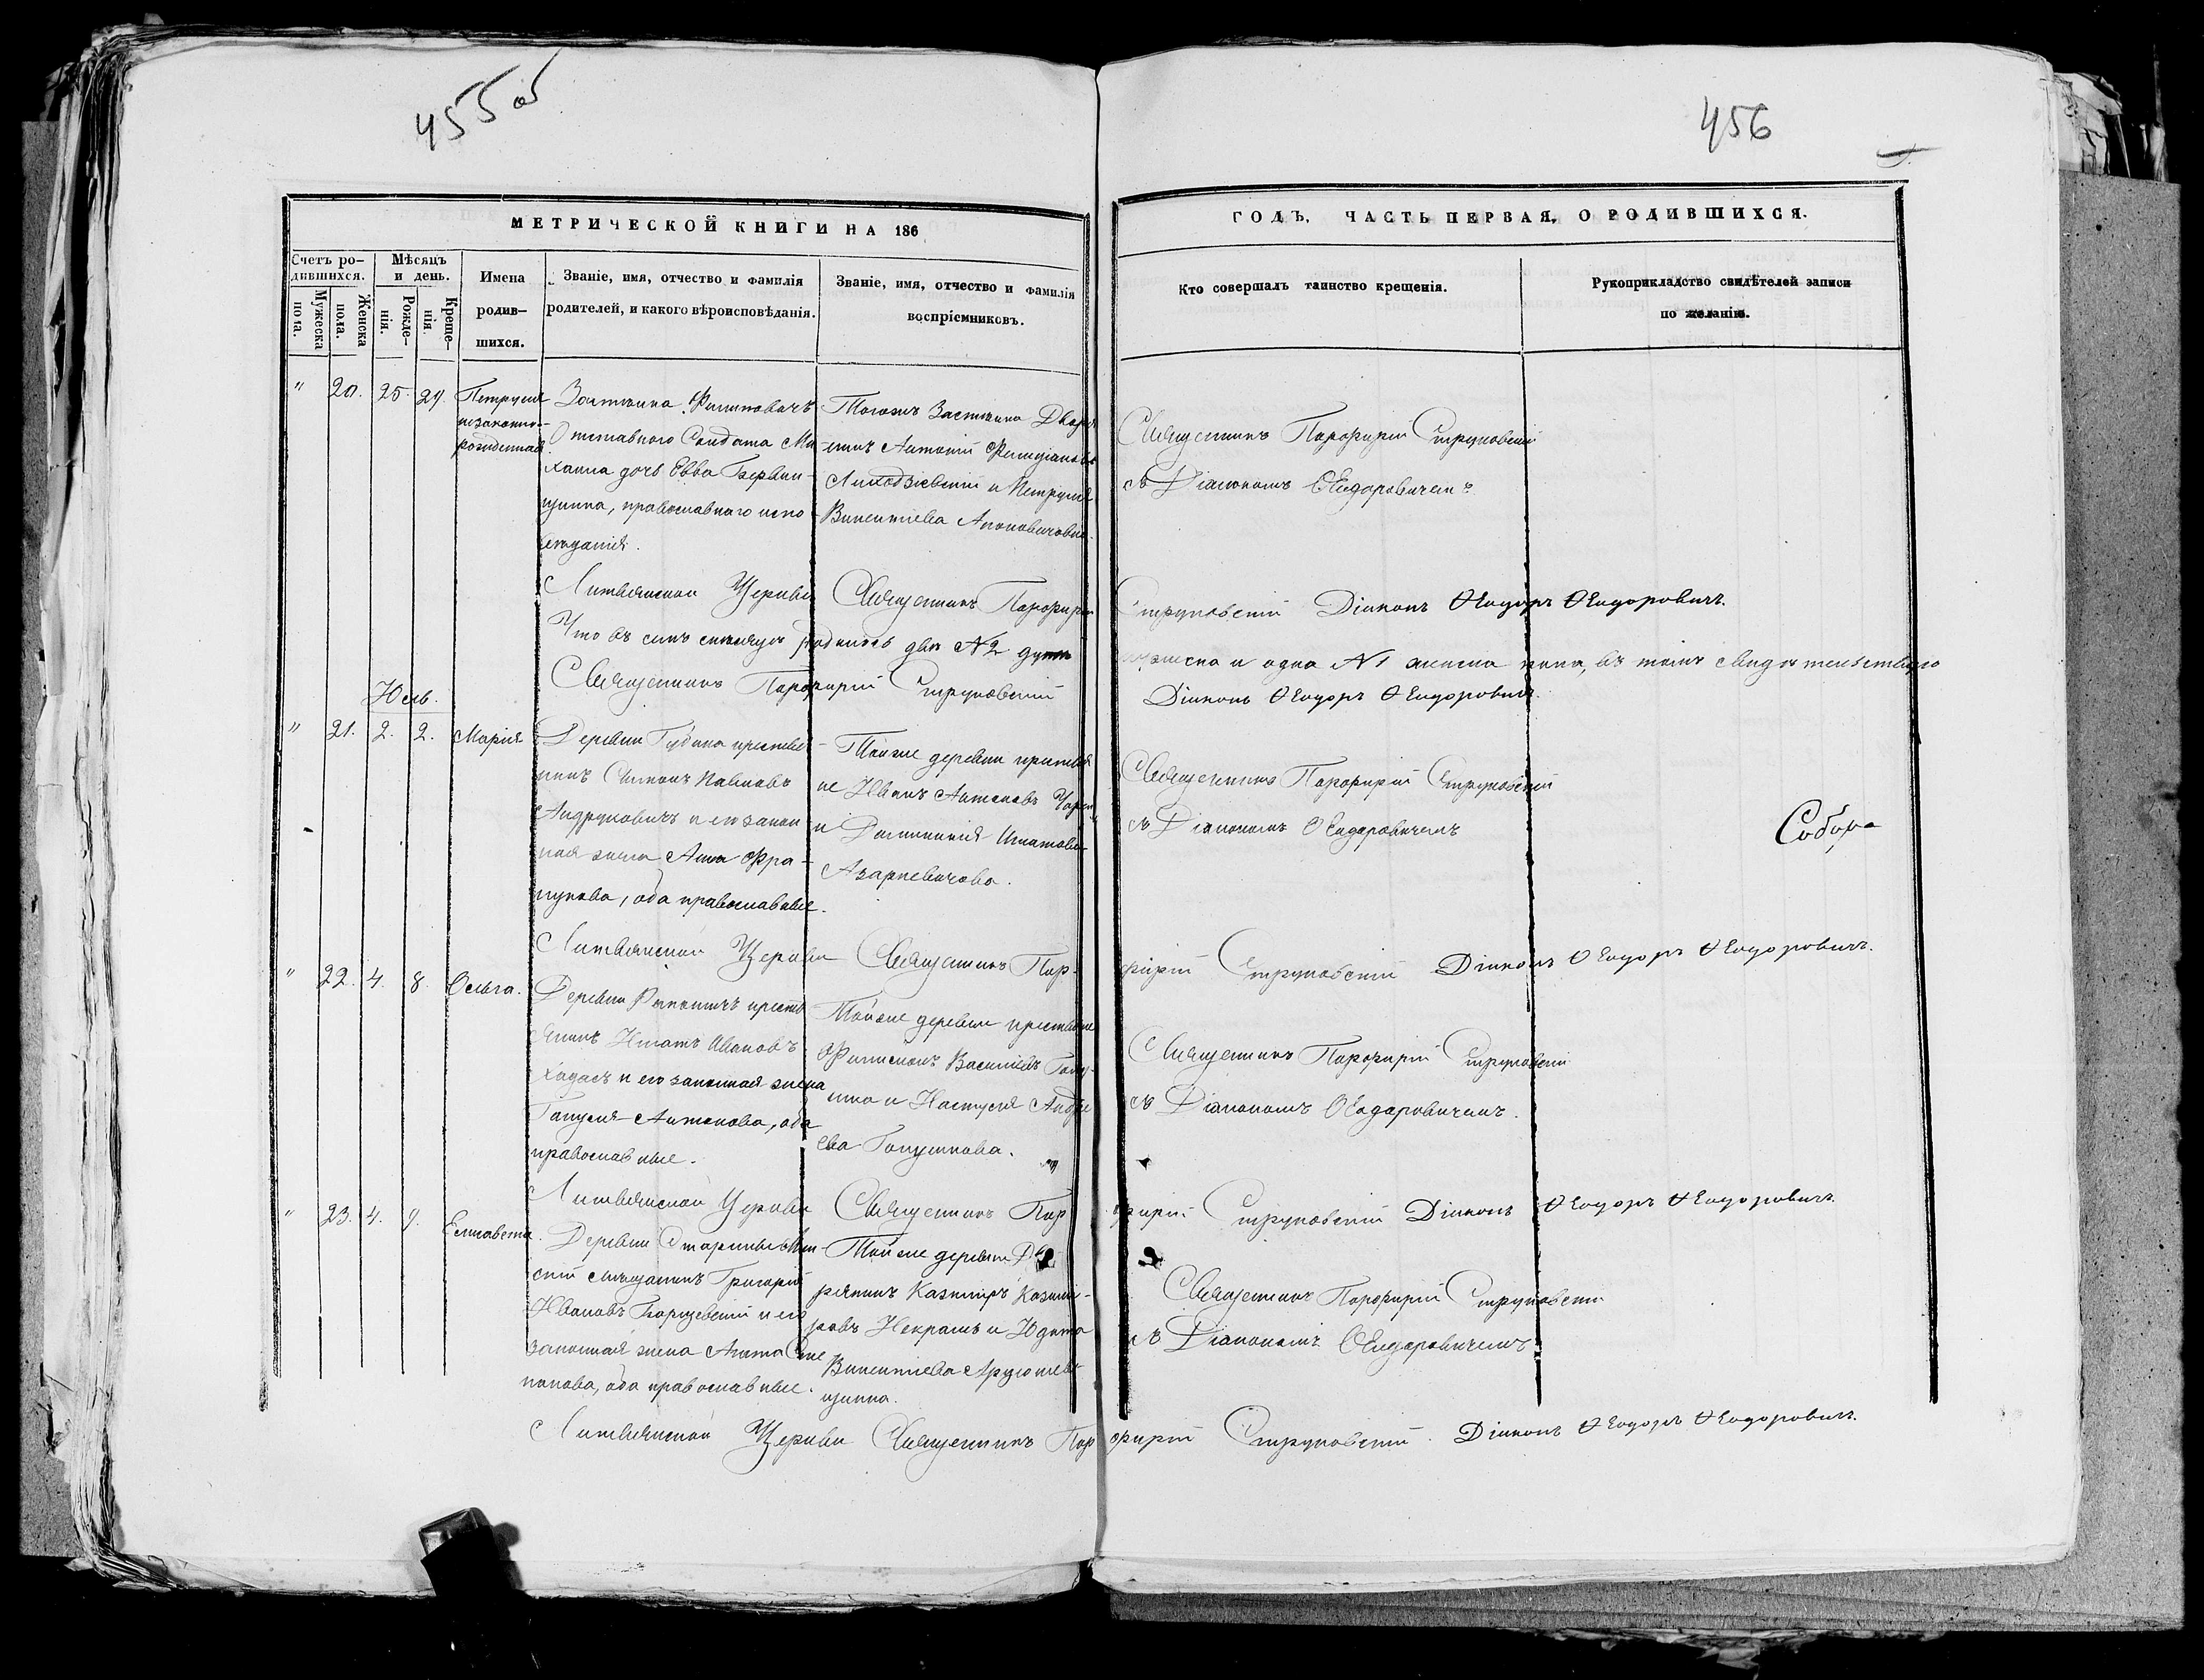 455 об
456
МЕТРИЧЕСКОЙ КНИГИ НА 186
ГОДЪ, ЧАСТЬ ПЕРВАЯ, О РОДИВШИХСЯ.
Счетъ родившихся.
Мужеска пола.
Женска пола.
Мѣсяцъ и день.
Рожденія.
Крещенія.
Имена родившихся.
Званіе, имя, отчество и фамилія
родителей, и какого вѣроисповѣданія.
Званіе, имя, отчество и фамилія
воспріемниковъ.
Кто совершалъ таинство крещенія.
Рукоприкладство свидѣтелей записи
по желанію.
" 20. 25. 29. Петруня
незаконно-
рожденная
Застѣнка
Отставнаго Солдата Ми-
хаила дочь Евва
православнаго испо-
вѣданія.
Тогожъ Застѣнка
Антоній
и Петруня
Викентіева
Священникъ Порфирій Струковскій
съ Діакономъ Ѳеодоровичемъ
Литвянской Церкви Священникъ Порфирій Струковскій Діаконъ Ѳеодоръ Ѳеодоровичъ.
Что въ семъ мѣсяцѣ родилось два №2 мужеска и одна №1 женска пола, въ томъ свидѣтельствую
Священникъ Порфирій Струковскій Діаконъ Ѳеодоръ Ѳеодоровичъ.
Юль.
" 21. 2. 2. Марія
Деревни Губина крестья-
нинъ Симонъ Павловъ
Андруковичъ и его закон-
ная жена Анна Фра-
цукова, оба православные.
Тойже деревни крестья
не Иванъ Антоновъ
и Доминикія Игнатова
Азаркевичова.
Священникъ Порфирій Струковскій
съ Діакономъ Ѳеодоровичемъ
Собора
Литвянской Церкви Священникъ Пор-
фирій Струковскій Діаконъ Ѳеодоръ Ѳеодоровичъ.
" 22. 4. 8. Ольга.
Деревни кресть
янинъ Игнатъ Ивановъ
Хадасъ и его законная жена
Гапуля Антонова, оба
православные.
Тойже деревни крестьяне
Филимонъ Васильевъ
и Настуся Андре
ева Голушкова.
Священникъ Порфирій Струковскій
съ Діакономъ Ѳеодоровичемъ.
Литвянской Церкви Священникъ Пор
фирій Струковскій Діаконъ Ѳеодоръ Ѳеодоровичъ.
" 23. 4. 9. Елисавета.
Деревни Мин-
скій мѣщанинъ Григорій
Ивановъ Борщевскій и его
законная жена Агата
оба православные.
Тойже деревни Дво
рянинъ Казиміръ Казимі-
ровъ Некрашъ и Юдита
Викентіева
Священникъ Порфирій Струковскій
съ Діакономъ Ѳеодоровичемъ
Литвянской Церкви Священникъ Пор
фирій Струковскій. Діаконъ Ѳеодоръ Ѳеодоровичъ.